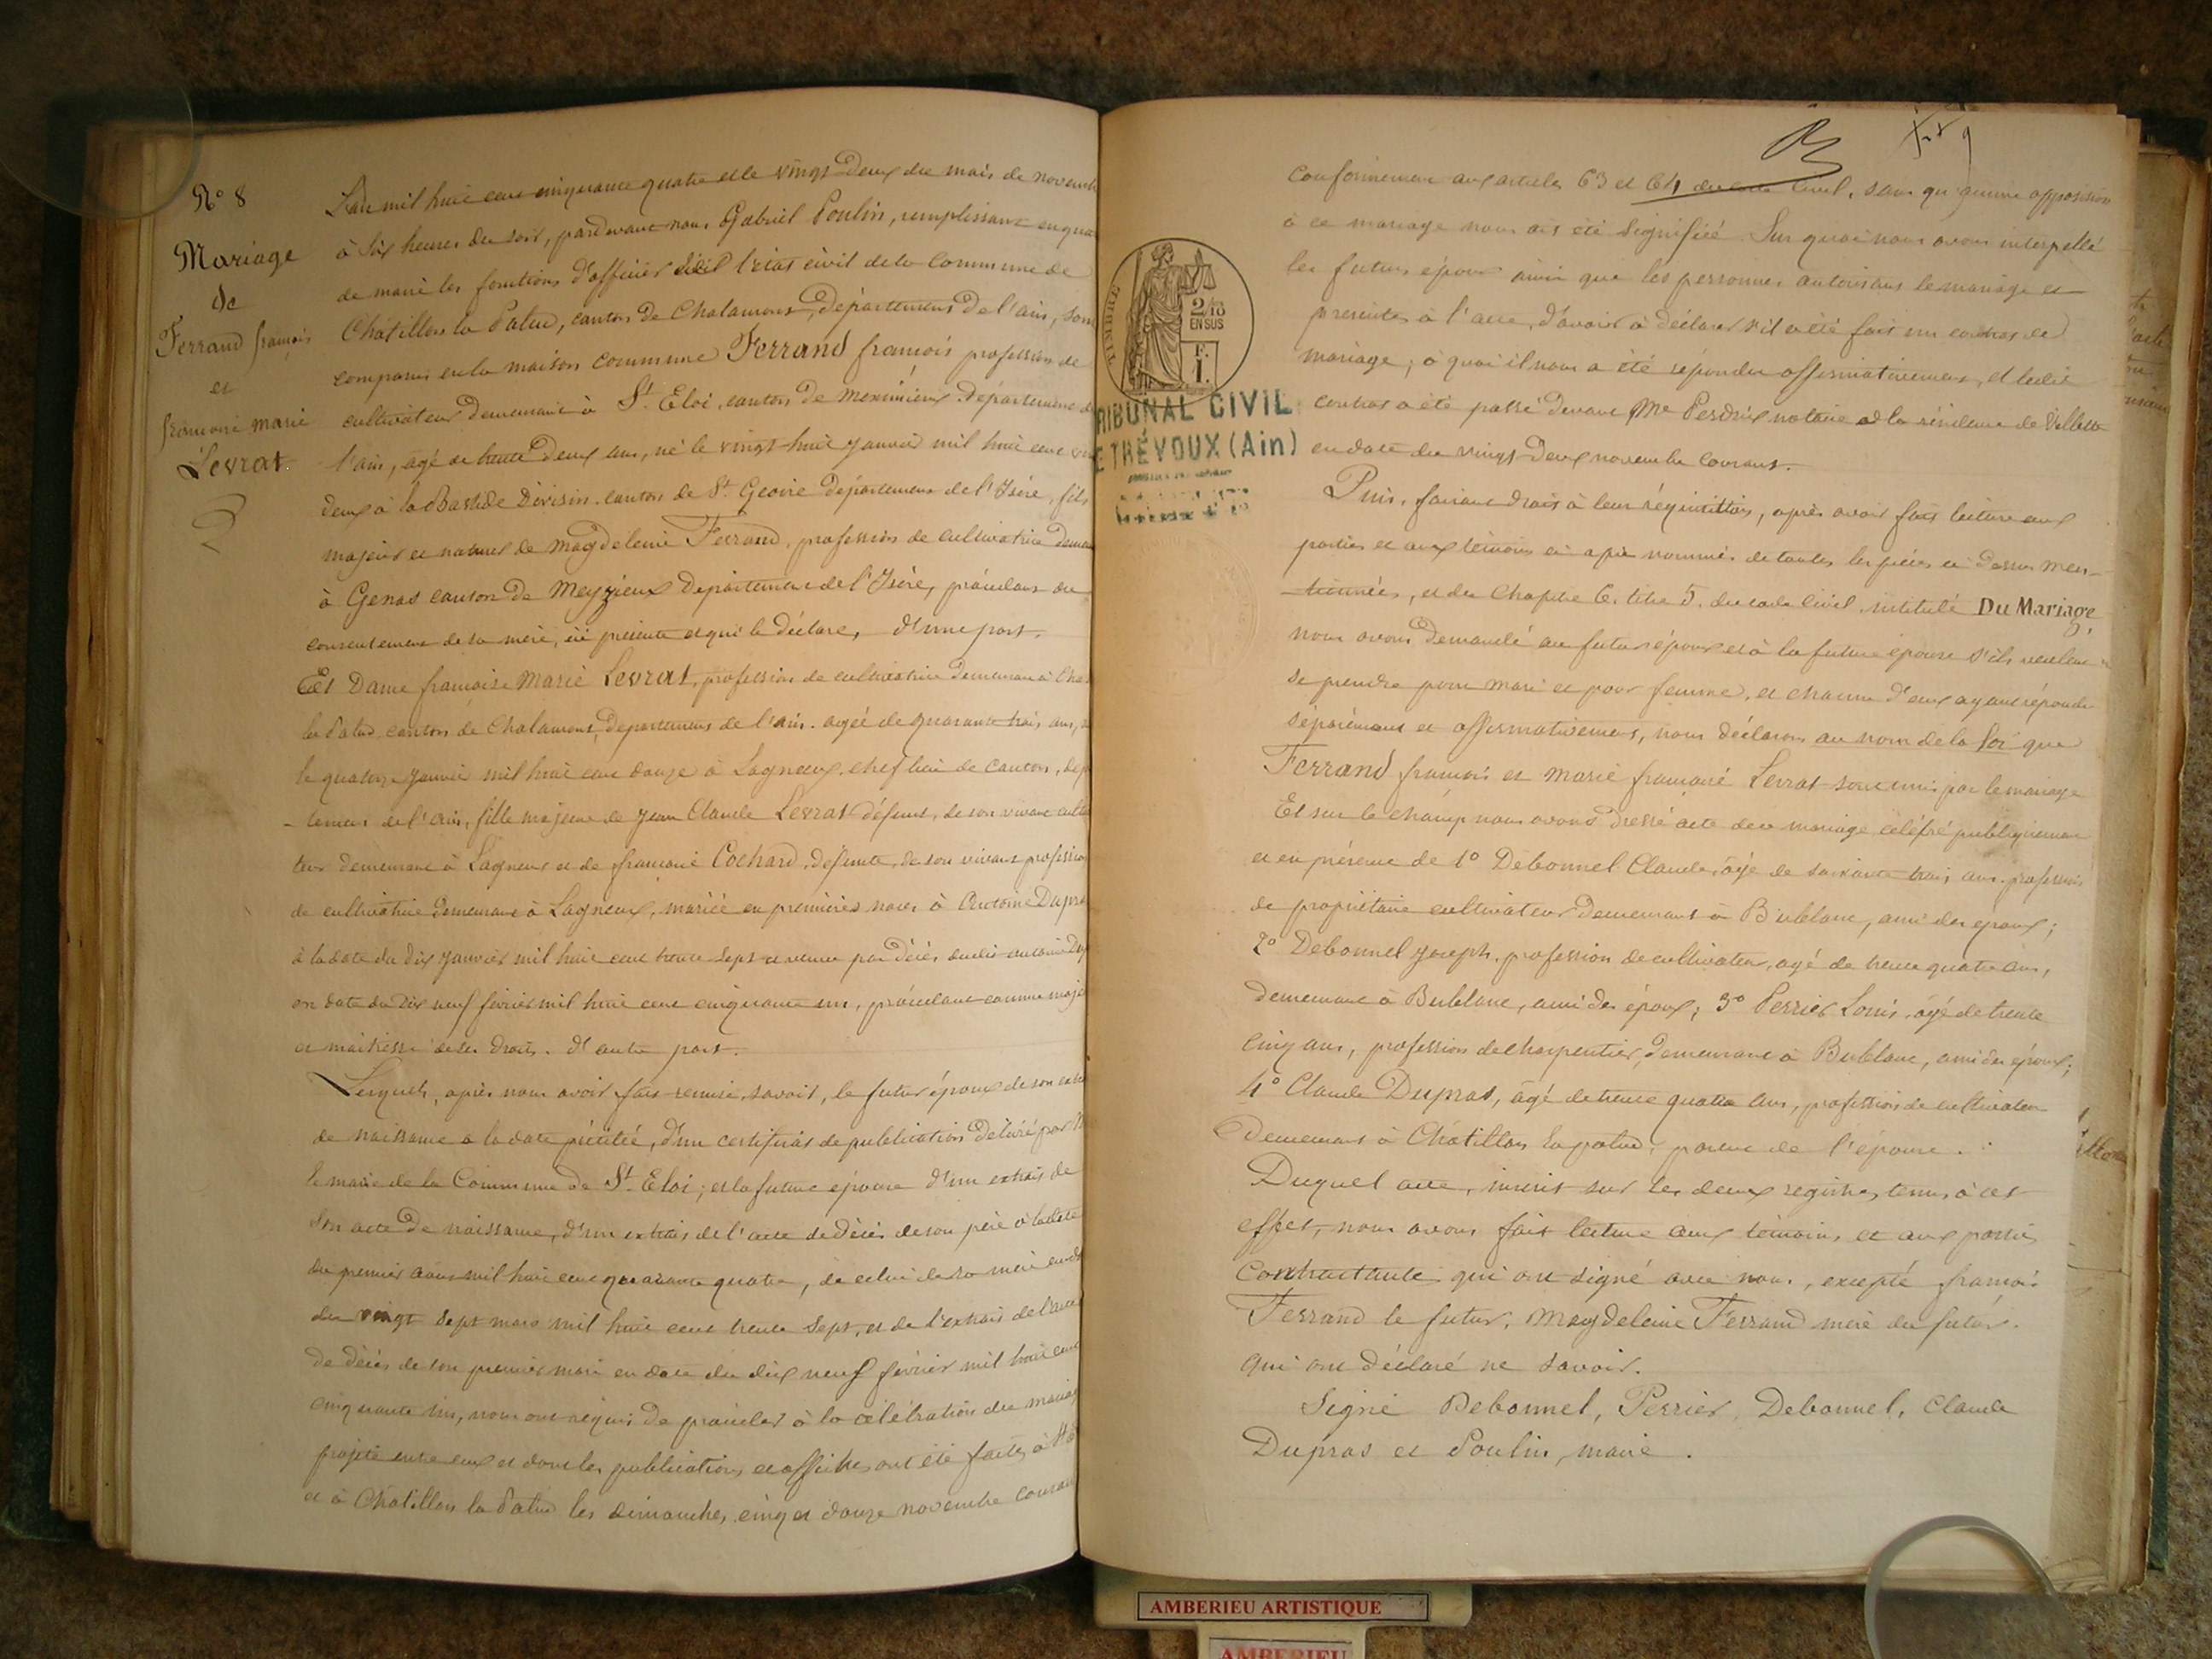 N° 8
Mariage
de
Ferrand françois
et
françoise marie
Levrat.
L'an mil huit cent cinquante quatre et le vingt deux du mois de novemb
à six heures du soir, pardevant nous Gabriel Poulin, remplissant en qua
de maire les fonctions d'officier de l'état civil de la Commune de
Châtillon la Palud, canton de Chalamont, département de l'ain, sont
comparus en la maison commune Ferrand françois profession de
cultivateur demeurant à St. Eloi, canton de meximieux département d
l'ain, agé de trente deux ans, né le vingt huit janvier mil huit cent
deux à la Bastide Divisin canton de St. Geoire département de l'Isère, fils
majeur et naturel de magdeleine Ferrand, profession de cultivatrice demeu
à Genas canton de Meyzieux département de l'Isère, procédant du
consentement de sa mère, ici présente et qui le déclare, d'une part.
Et Dame françoise Marie Levrat, profession de cultivatrice demeurant à Cha
la Palud canton de Chalamont, département de l'ain. agée de quarante trois ans,
le quatorze janvier mil huit cent douze à Lagneux, chef lieu de canton, dép
-tement de l'ain, fille majeure de jean Claude Levrat défunt, de son vivant culti
teur demeurant à Lagneux et de françoise Cochard, défunte, de son vivant profession
de cultivatrice demeurant à Lagneux, mariée en premières noces à Antoine Dupra
à la date du dix janvier mil huit cent trente sept et veuve par décès dudit antoine Dup
en date du dix neuf février mil huit cent cinquante un, procédant comme maje
et maitresse de ses droits. d'autre part.
Lesquels, après nous avoir fait remise, savoir, le futur époux de son extra
de naissance à la date précitée, d'un certificat de publication délivré par M
le maire de la Commune de St. Eloi; et la future épouse d'un extrait de
son acte de naissance, d'un extrait de l'acte de décès de son père à la date
du premier août mil huit cent quarante quatre, de celui de sa mère en d
du vingt sept mars mil huit cent trente sept, et de l'extrait de l'acte
de décès de son premier mari en date du dix neuf février mil huit cent
cinquante un, nous ont requis de procéder à la célébration du mariag
projeté entre eux et dont les publications et affiches ont été faites à St.
et à Châtillon la Palud les dimanches cinq et douze novembre couran
conformément aux articles 63 et 64 du code Civil, sans qu'aucune opposition
à ce mariage nous ait été signifiée. Sur quoi nous avons interpellé
les futurs époux ainsi que les personnes autorisant le mariage et
présentes à l'acte, d'avoir à déclarer s'il a été fait un contrat de
mariage; à quoi il nous a été répondu affirmativement, et ledit
contrat a été passé devant Me Perdrix notaire à la résidence de Villette
en date du vingt deux novembre courant.
TIMBRE
2/10
EN SUS
F.
1.
RIBUNAL CIVIL
E TRÉVOUX (Ain)
Puis, faisant droit à leur réquisition, après avoir fait lecture aux
parties et aux témoins ci après nommés de toutes les pièces ci dessus men-
-tionnées, et du Chapitre 6. titre 5. du code Civil, intitulé Du Mariage,
nous avons demandé au futur époux et à la future épouse s'ils veulent
se prendre pour mari et pour femme, et chacun d'eux ayant répondu
séparément et affirmativement, nous déclarons au nom de la loi que
Ferrand françois et marie françoise Levrat sont unis par le mariage
Et sur le champ nous avons dressé acte de ce mariage célébré publiquement
et en présence de 1° Debonnel Claude, âgé de soixante trois ans. profession
de propriétaire cultivateur demeurant à Bublanc, ami des epoux;
2° Debonnel joseph, profession de cultivateur, agé de trente quatre ans,
demeurant à Bublanc, ami des époux; 3° Perrier Louis, âgé de trente
cinq ans, profession de charpentier, demeurant à Bublanc, ami des époux;
4° Claude Dupras, âgé de trente quatre ans, profession de cultivateur
demeurant à Châtillon la palud, parent de l'épouse.
Duquel acte, inscrit sur les deux registres tenus à cet
effet, nous avons fait lecture aux témoins et aux parties
Contractante qui ont signé avec nous, excepté françois
Ferrand le futur, Magdeleine Ferrand mère du futur.
qui ont déclaré ne savoir.
Signé Debonnel, Perrier, Debonnel, Claude
Dupras et Poulin, maire.
AMBERIEU ARTISTIQUE
AMBERIEU